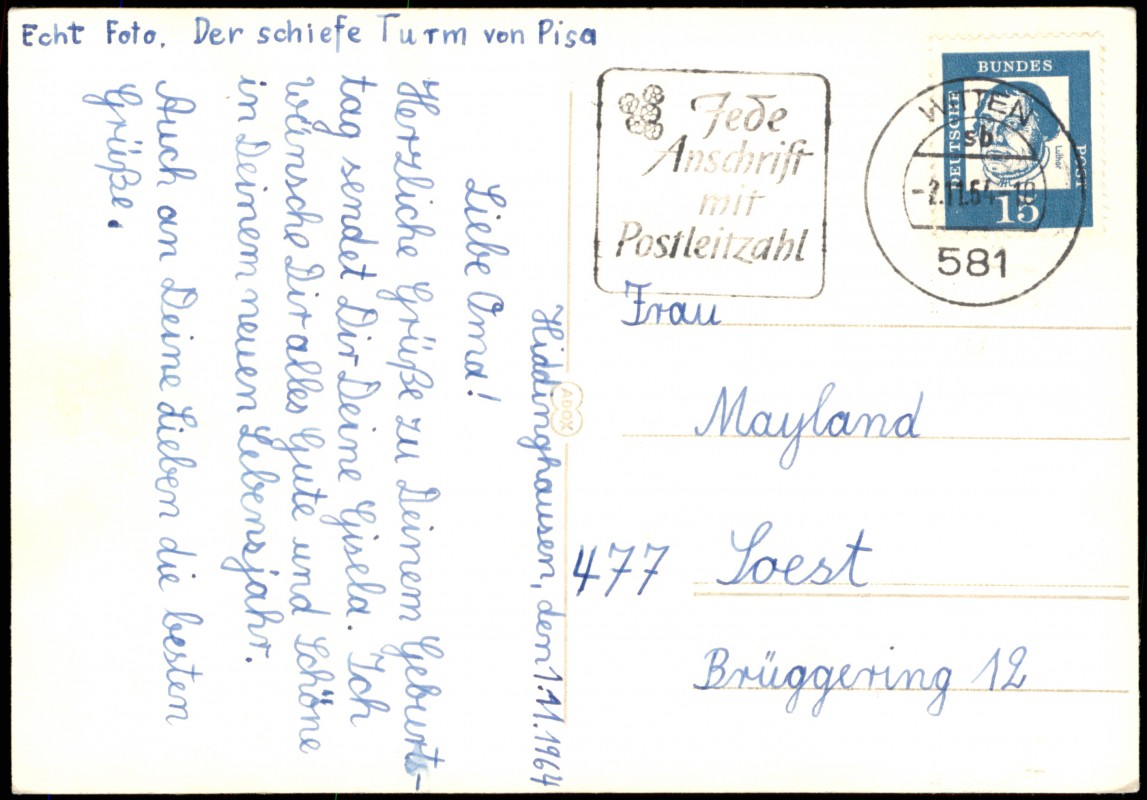 Echt Foto. Der schiefe Turm von Pisa
Hiddinghausen, den 1.11.1964
Liebe Oma!
Herzliche Grüße zu Deinem Geburts-
tag sendet Dir Deine Gisela. Ich
wünsche Dir alles Gute und Schöne
in Deinem neuen Lebensjahr.
Auch an Deine Lieben die besten
Grüße.
ADOX
Jede
Anschrift
mit
Postleitzahl
DEUTSCHE
BUNDES
POST
Luther
15
WITTEN
sb
-2.11.64-18
581
Frau
Mayland
477 Soest
Brüggering 12